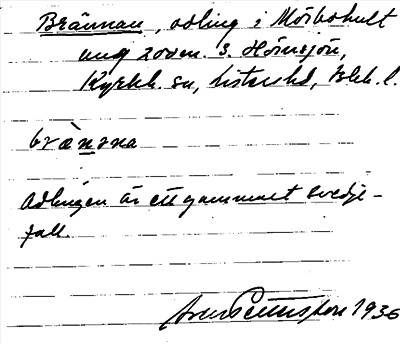 Brännan, odling i Mörbohult
ung 200 m. S. Hönsjön,
Kyrkh. sn, Listers hd, Blek. l.
brænna
Odlingen är ett gammalt svedje-
fall.
1936